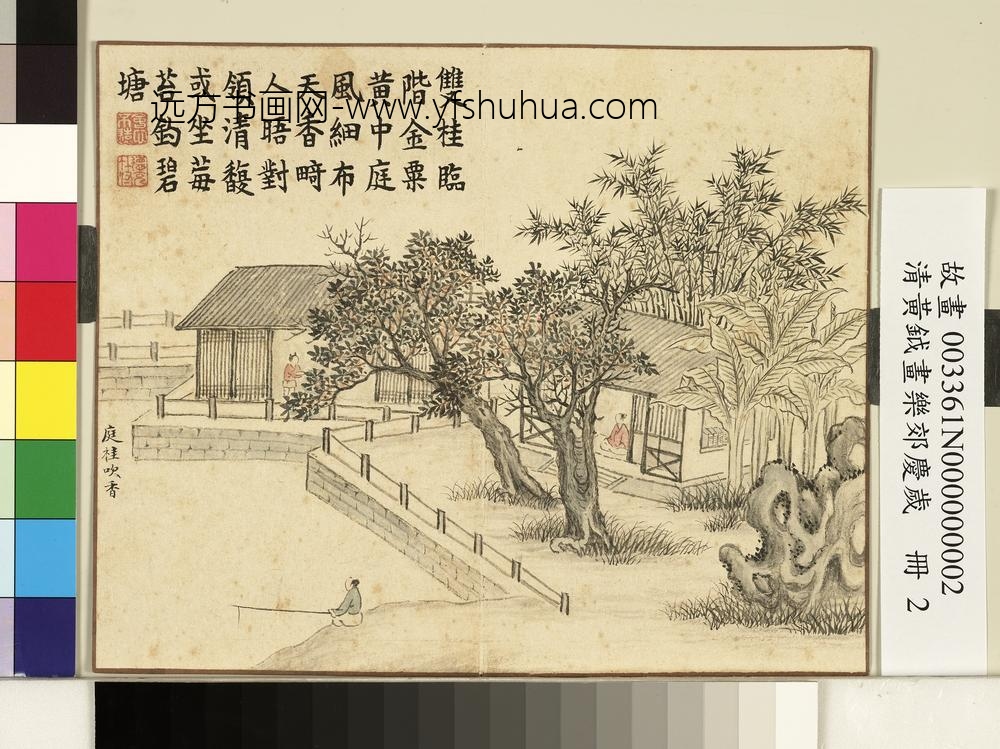 雙桂臨
階金粟
黄中庭
風細布
天香時
人晤對
領清馥
或坐莓
苔釣碧
塘
远方书画网-www.yfshuhua.com
庭桂吹香
故畫 003361N000000002
清黃鉞畫樂郊慶歲 冊 2